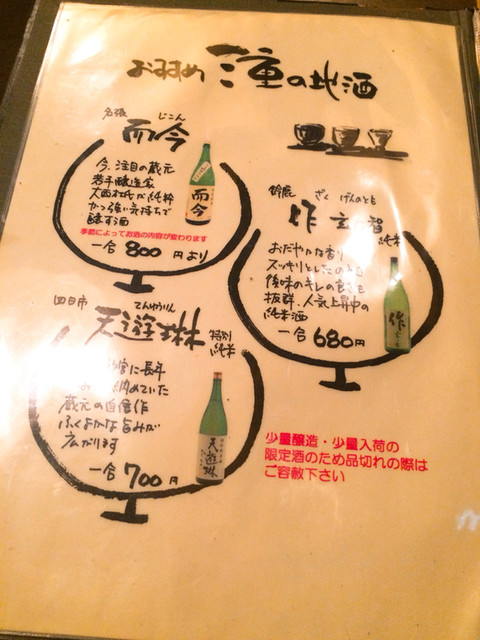 おすすめ 三重の地酒
名張
じこん
而今
今、注目の蔵元
若手醸造家
大西杜氏が純粋
かつ強い気持ちで
醸す酒
季節によってお酒の内容が変わります
一合 800 円より
而今
鈴鹿
ざく げんのとも
作 玄乃智 純米
おだやかな香り
スッキリとした
後味のキレの良さも
抜群、人気上昇中の
純米酒
一合 680円
作
四日市
てんゆうりん
天遊琳 特別純米
に長年
納めていた
蔵元の自信作
ふくよかな旨みが
広がります
一合 700 円
天遊琳
少量醸造・少量入荷の
限定酒のため品切れの際は
ご容赦下さい